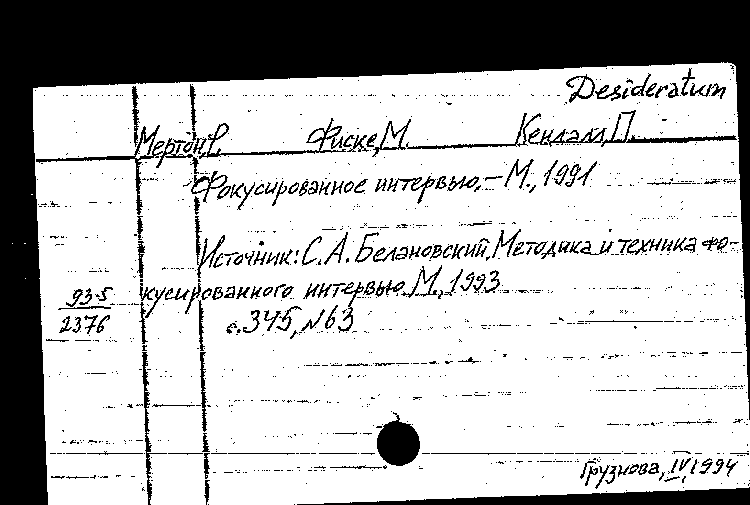 Desideratum
Мертон, Р. Фиске, М. Кендалл, П.
Фокусированное интервью. – М., 1991
Источник: С. А. Белановский. Методика и техника фо-
кусированного интервью. М., 1993
93-5
2376
с. 345, №63
Грузнова, IV, 1994